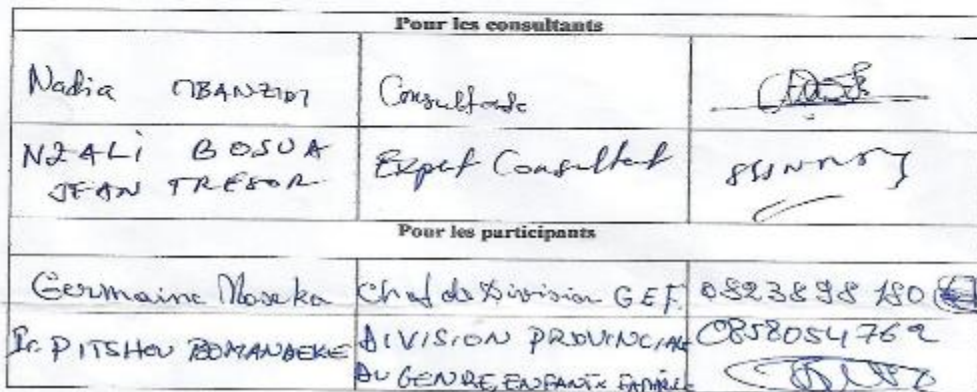 Pour les consultants
Nadia MBANZIDI Consultante
NZALI BOSUA Expert Consultant
JEAN TRESOR
Pour les participants
Germaine Moseka Chef de Division GEF. 0823898180
Ir. PITSHOU BOMANDEKE DIVISION PROVINCIALE 0858054762
DU GENRE, ENFANT & FAMILLE